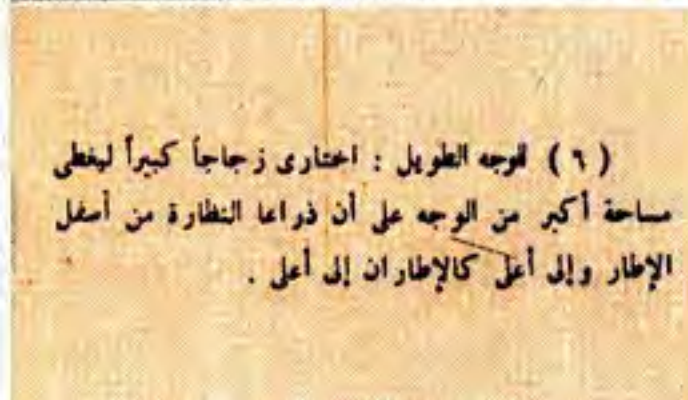 ( ٦ ) الوجه الطويل : اختارى زجاجاً كبيراً ليغطى
مساحة أكبر من الوجه على أن ذراعا النظارة من أسفل
الإطار وإلى أعلى كالإطاران إلى أعلى .